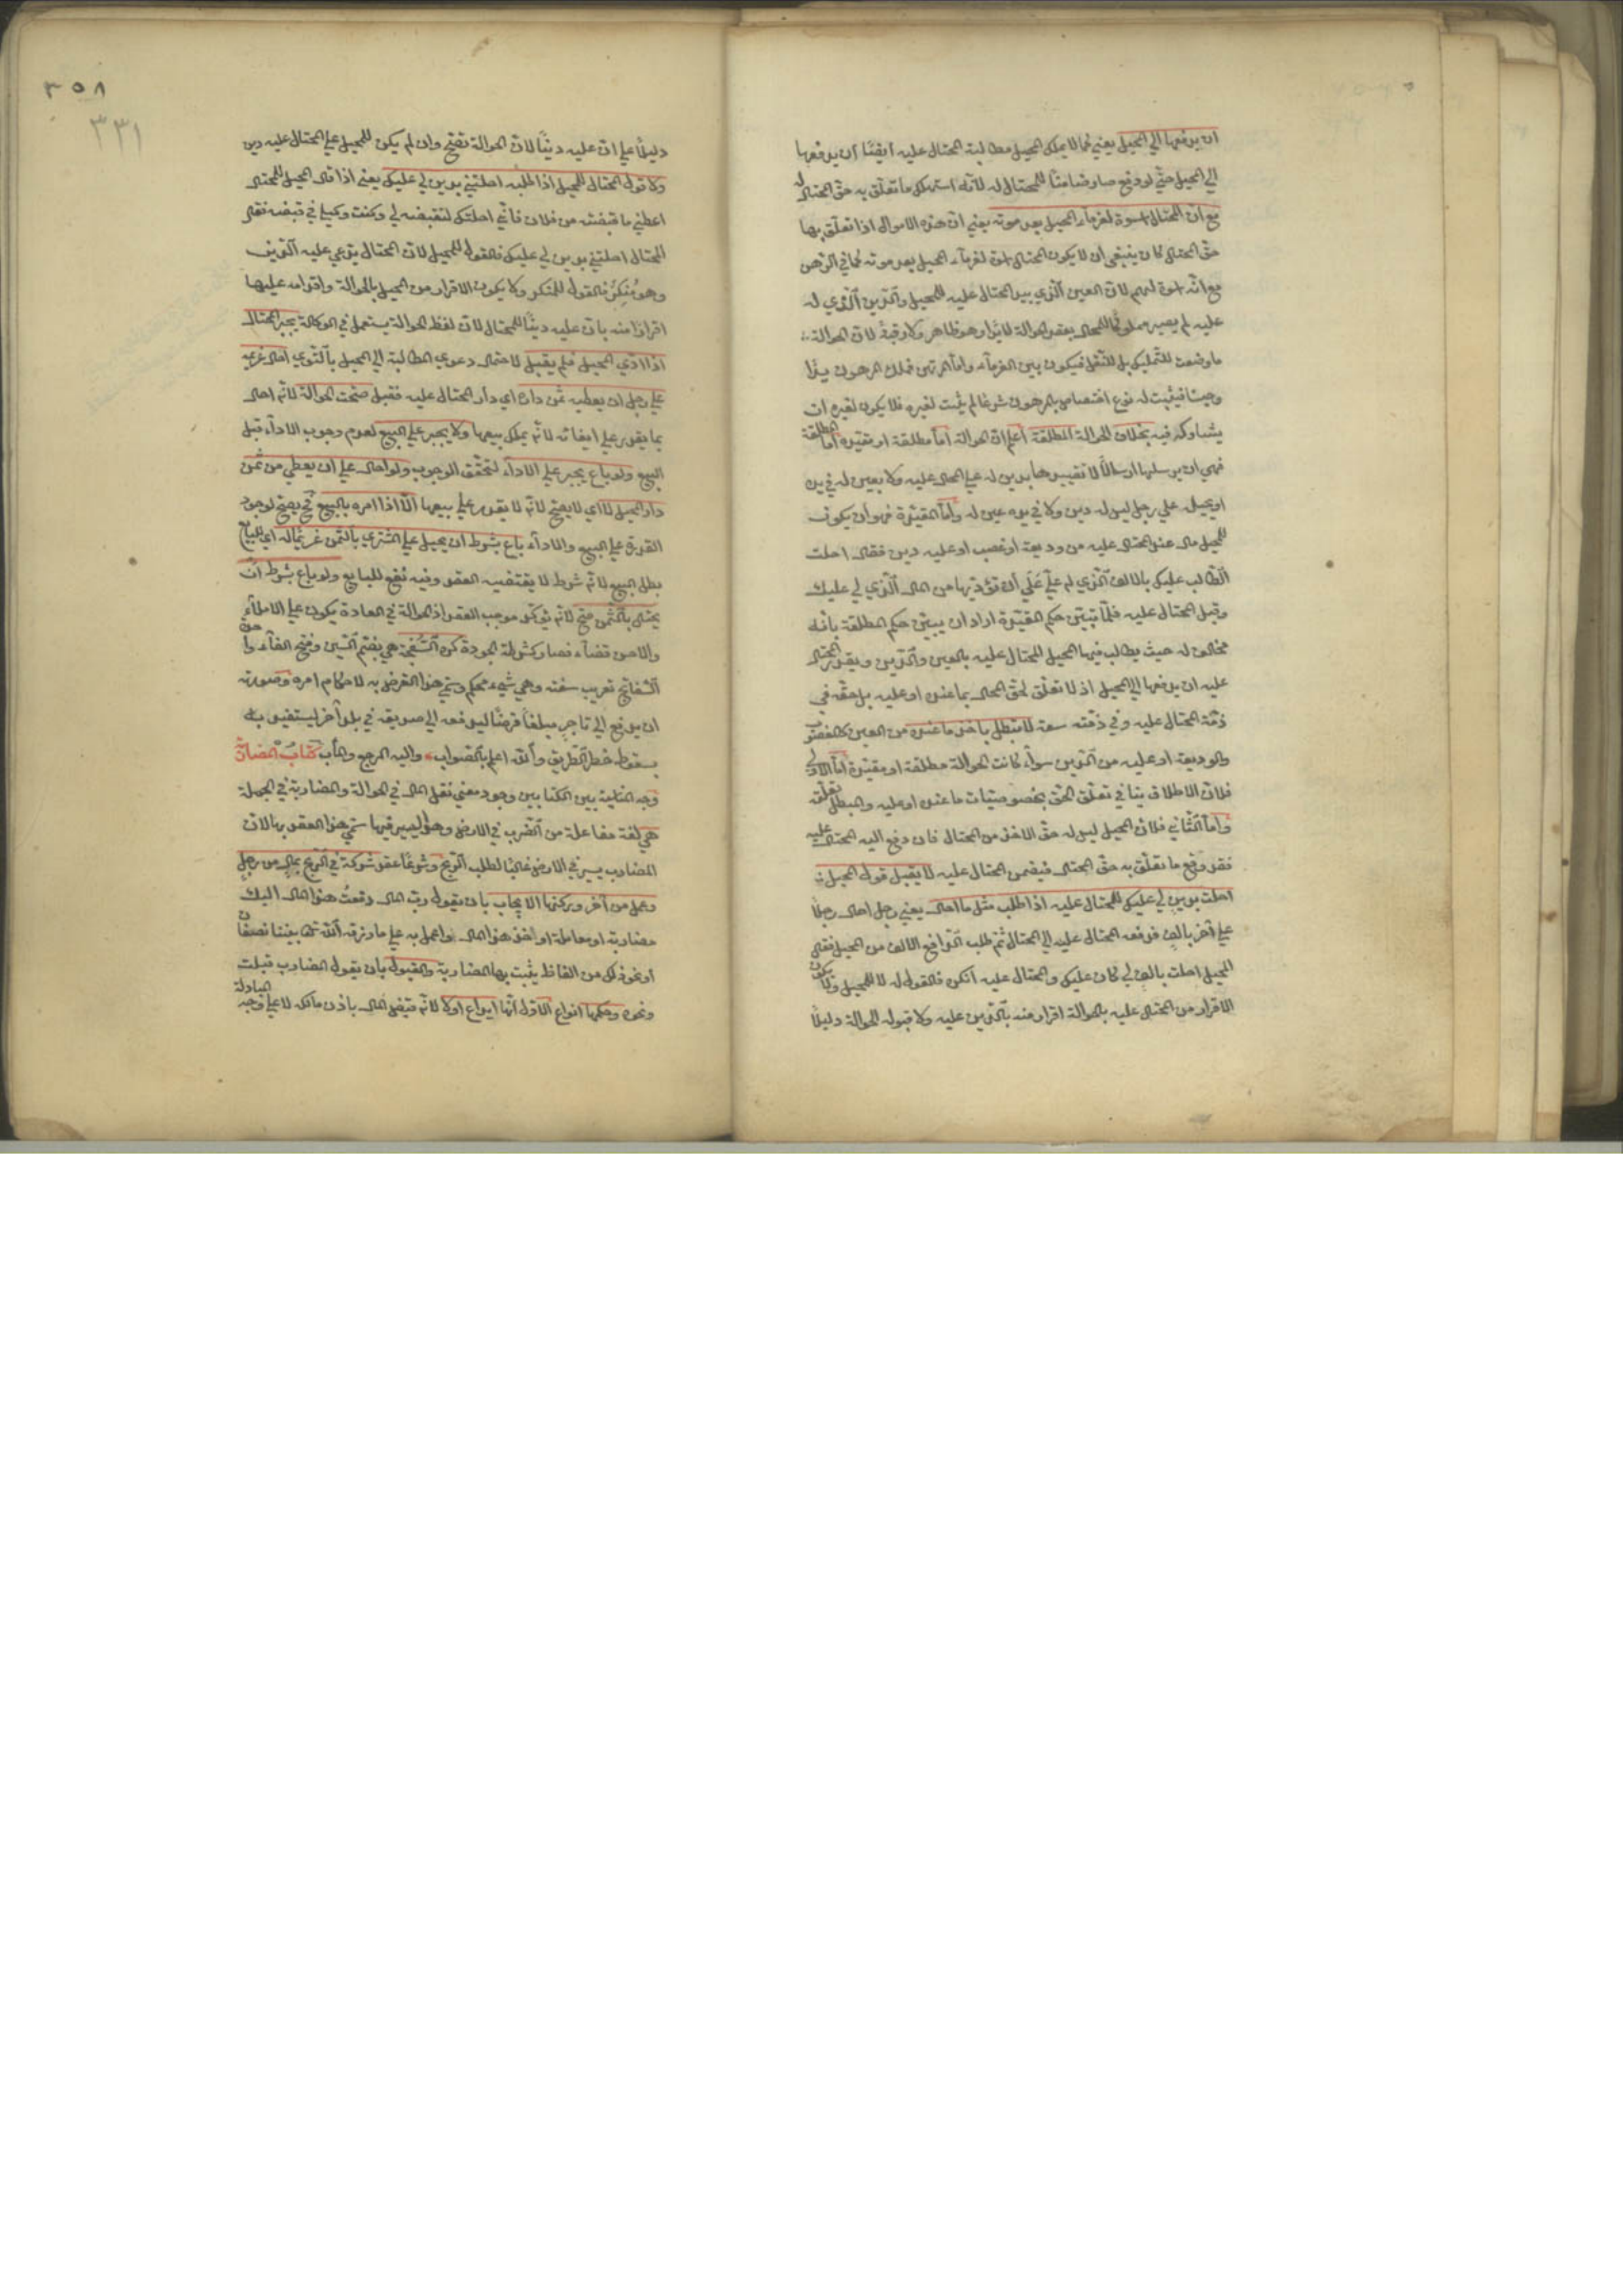 ان يدفعها الي المحيل يعني كما لا يملك المحيل مطالبة المحتال عليه ايضًا ان يدفعها
الي المحيل حتي لو دفع صار ضامنًا للمحتال له لانه استهلك ما تعلّق به حقّ المحتال له
مع انّ المحتال اسوة لغرمآء المحيل بعد موته يعني انّ هذه الاموال اذا تعلّق بها
حقّ المحتال كان ينبغي ان لا يكون المحتال اسوة لغرمآء المحيل بعد موته كما في الرّهن
مع انّه اسوة لهم لانّ العين الّذي بيد المحتال عليه للمحيل والدّين الّذي له
عليه لم يصير مملوكًا للمحتال بعقد الحوالة لا يدًا وهو ظاهر ولا رقبةً لانّ الحوالة
ما وضعت للتّمليك بل للنّقل فيكون بين الغرمآء وامّا المرتهن فملك المرهون يدًا
وحبسًا فيثبت له نوع اختصاص بالمرهون شرعًا لم يثبت لغيره فلا يكون لغيره ان
يشاركه فيه بخلاف الحوالة المطلقة اعلم انّ الحوالة امّا مطلقة او مقيّدة امّا المطلقة
فهي ان يرسلها ارسالًا لا تقييدها بدين له علي المحتال عليه ولا بعين له في يده
او يحيل علي رجل ليس له دين ولا في يده عين له وامّا المقيّدة فهو ان يكون
للمحيل مال عند المحتال عليه من وديعة او غصب او عليه دين فقال احلت
الطّالب عليك بالالف الّذي له عليّ علي أن تؤدّيها من المال الّذي لي عليك
وقبل المحتال عليه فلمّا تبيّن حكم المقيّدة اراد ان يبيّن حكم المطلقة بانه
مخالف له حيث يطالب فيها المحيل المحتال عليه بالعين والدّين ويقدر المحتال
عليه ان يدفعها الي المحيل اذ لا تعلّق لحقّ المحتال بما عنده او عليه بل حقّه في
ذمّة المحتال عليه وفي ذمّته سعة لا تبطل باخذ ما عنده من العين كالغصب
والوديعة او عليه من الدّين سوآء كانت الحوالة مطلقة او مقيّدة امّا الاوّل
فلانّ الاطلاق ينافي تعلّق الحقّ بخصوصيّات ما عنده او عليه والمبطل تعلّقه
وامّا الثّاني فلانّ المحيل ليس له حقّ الاخذ من المحتال فان دفع اليه المحتال عليه
فقد دفع ما تعلّق به حقّ المحتال فيضمن المحتال عليه لا يقبل قول المحيل
احلت بدين لي عليك للمحتال عليه اذا طلب مثل ما احال يعني رجل احال رجلًا
علي آخر بالف فدفعه المحتال عليه الي المحتال ثمّ طلب الدّافع الالف من المحيل فقال
المحيل احلت بالف لي كان عليك والمحتال عليه انكره فالقول له لا للمحيل ولا يكون
الاقرار من المحتال عليه بالحوالة اقرار منه بالدّين عليه ولا قبوله الحوالة دليلًا
٣٥٨
٣٣١
دليلًا علي انّ عليه دينًا لانّ الحوالة تصّح وان لم يكن للمحيل علي المحتال عليه دين
ولا قول المحتال للمحيل اذا طلبه احلتني بدين لي عليك يعني اذا قال المحيل للمحتال
اعطني ما قبضته من فلان فانّي احلتك لتقبضه لي وكنت وكيلي في قبضه فقال
المحتال احلتني بدين لي عليك فالقول للمحيل لانّ المحتال يدّعي عليه الدّين
وهو مُنكِرٌ فالقول للمنكر ولا يكون الاقرار من المحيل بالحوالة واقدامه عليها
اقرارًا منه بانّ عليه دينًا للمحتال لانّ لفظ الحوالة يستعمل في الوكالة يجبر المحتال
اذا ادّي المحيل فلم يقبل لاحتمال دعوي المطالبة الي المحيل بالتّوي احال غريمه
علي رجل ان يعطيه ثمن داره اي دار المحتال عليه فقبل صحّت الحوالة لانّه احال
بما يقدر علي ايفائه لانّه يملك بيعها ولا يجبر علي البيع لعدم وجوب الادآء قبل
البيع ولو باع يجبر علي الادآء لتحقّق الوجوب ولو احال علي ان يعطي من ثمن
دار المحيل لا اي لا يصّح لانّه لا يقدر علي بيعها الّا اذا امره بالبيع فحّ يصحّ لوجود
القدرة علي البيع والادآء باع بشرط ان يحيل علي المشتري بالثّمن غريمًا له اي للبايع
بطل البيع لانّه شرط لا يقتضيه العقد وفيه نفع للبايع ولو باع بشرط ان
يحتال بالثّمن صحّ لانّه يؤكّد موجب العقد اذ الحوالة في العادة يكون علي الاملأء
والاحسن قضآء فصار كشرط الجودة كره السّفتجة هي بضّم السّين وفتح التآء واحدة
السّفاتج تعريب سفته وهي شيء محكم وسمّي هذا القرض به لاحكام امره وصورته
ان يدفع الي تاجر مبلغًا قرضًا ليدفعه الي صديقه في بلد آخر ليستفيد به
سقوط خطر الطّريق والله اعلم بالصّواب واليه المرجع والمآب كتاب المضاربة
وجه المناسبة بين الكتابين وجود معني نقل المال في الحوالة والمضاربة في الجملة
هي لغة مفاعلة من الضّرب في الارض وهو السير فيها سمّي هذا العقد بها لانّ
المضارب يسير في الارض غالبًا لطلب الرّبح وشرعًا عقد شركة في الرّبح بمال من رجل
وعمل من آخر وركنها الايجاب بان يقول ربّ المال دفعتُ هذا المال اليك
مضاربة او معاملة او خذ هذا المال واعمل به علي ما رزقه الله تعا بيننا نصفان
او نحو ذلك من الفاظ يثبت بها المضاربة والقبول بان يقول المضارب قبلت
ونحوه وحكمها انواع الاوّل انّها ايداع اولا لانّه قبض المال باذن مالكه لا علي وجه المبادلة